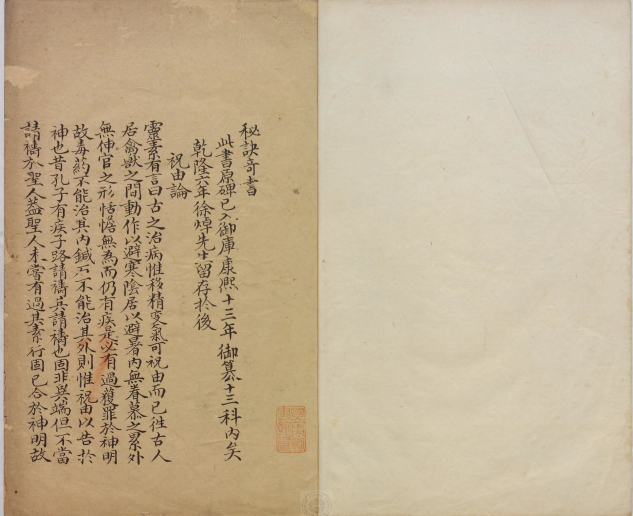 秘訣奇書
此書原碑已入御庫康熙十三年御纂十三科內矣
乾隆六年徐焯先生留存於後
祝由論
靈素有言曰古之治病惟移精变氣可祝由而已往古人
居禽獸之間動作以避寒陰居以避暑內無眷慕之累外
無伸官之形恬憺無為而仍有疾是必有過獲罪於神明
故毒葯不能治其內鍼石不能治其外則惟祝由以告於
神也昔孔子有疾子路請禱其請禱也固非異端但不當
請禱於聖人蓋聖人未嘗有過其素行固已合於神明故